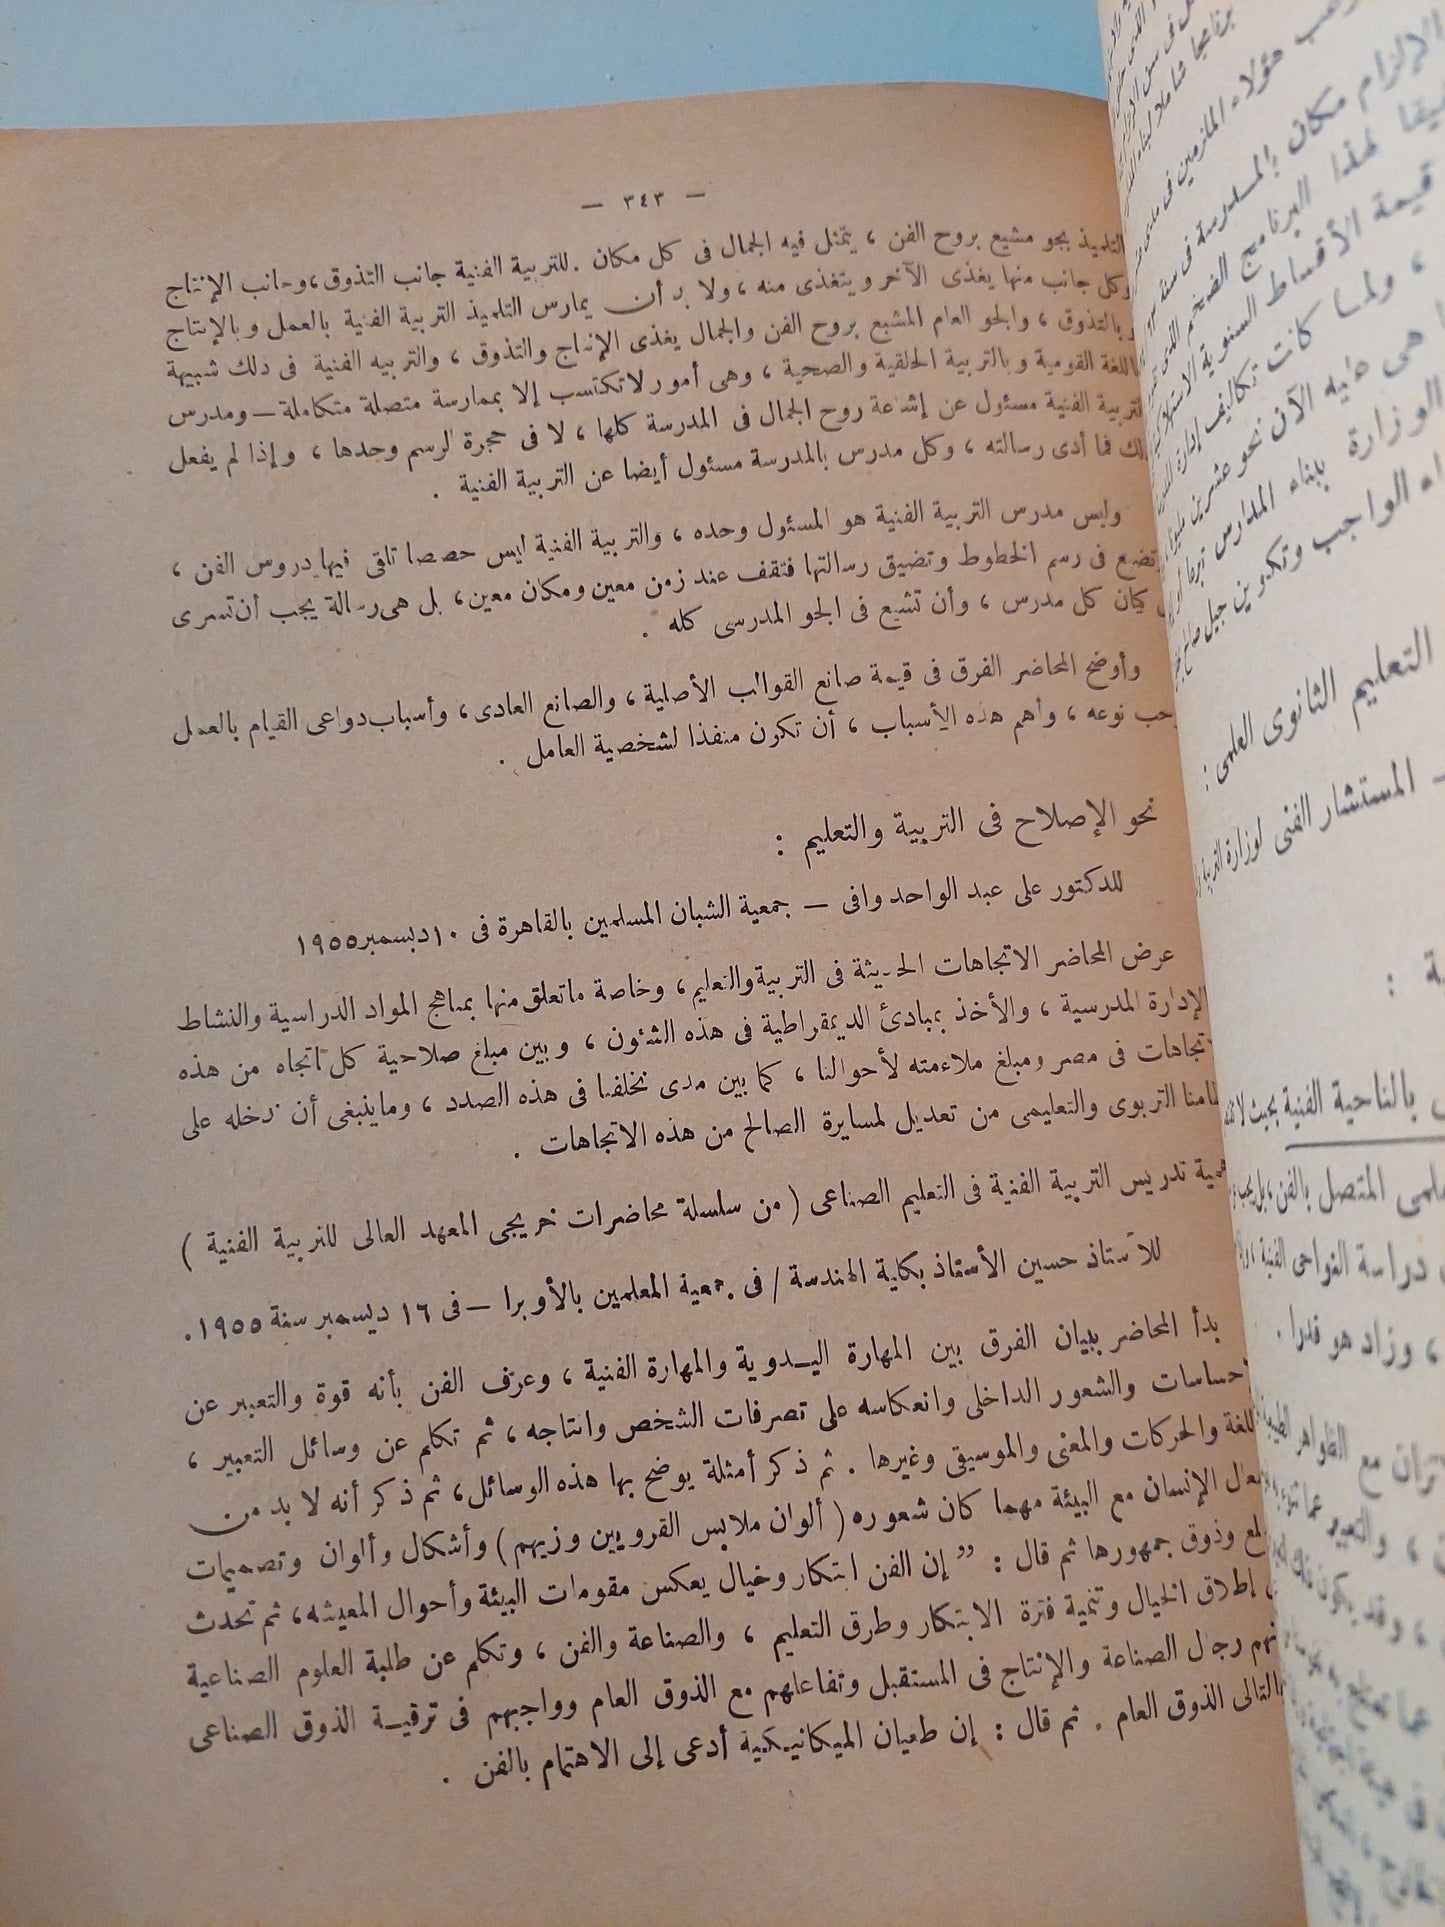 — ٣٤٣ —
التلميذ بجو مشبع بروح الفن ، يتمثل فيه الجمال فى كل مكان . للتربية الفنية جانب التذوق ، وجانب الإنتاج
وكل جانب منها يغذى الآخر ويتغذى منه ، ولا بد أن يمارس التلميذ التربية الفنية بالعمل وبالإنتاج
وبالتذوق ، والجو العام المشبع بروح الفن والجمال يغذى الإنتاج والتذوق ، والتربيه الفنية فى ذلك شبيهة
باللغة القومية وبالتربية الخلقية والصحية ، وهى أمور لا تكتسب إلا بممارسة متصلة متكاملة — ومدرس
التربية الفنية مسئول عن إشاعة روح الجمال فى المدرسة كلها ، لا فى حجرة الرسم وحدها ، وإذا لم يفعل
ذلك فما أدى رسالته ، وكل مدرس بالمدرسة مسئول أيضا عن التربية الفنية .
وليس مدرس التربية الفنية هو المسئول وحده ، والتربية الفنية ليس حصصا تلقى فيها دروس الفن ،
وتضيع فى رسم الخطوط وتضيق رسالتها فتقف عند زمن معين ومكان معين ، بل هى رسالة يجب أن تسرى
كيان كل مدرس ، وأن تشيع فى الجو المدرسى كله .
وأوضح المحاضر الفرق فى قيمة صانع القوالب الأصلية ، والصانع العادى ، وأسباب دواعى القيام بالعمل
نوعه ، وأهم هذه الأسباب ، أن تكون منفذا لشخصية العامل .
نحو الإصلاح فى التربية والتعليم :
للدكتور على عبد الواحد وافى — جمعية الشبان المسلمين بالقاهرة فى ١٠ ديسمبر ١٩٥٥
عرض المحاضر الاتجاهات الحديثة فى التربية والتعليم ، وخاصة ما تعلق منها بمناهج المواد الدراسية والنشاط
الإدارة المدرسية ، والأخذ بمبادئ الديمقراطية فى هذه الشئون ، وبين مبلغ صلاحية كل اتجاه من هذه
الاتجاهات فى مصر ومبلغ ملاءمته لأحوالنا ، كما بين مدى تخلفنا فى هذه الصدد ، وما ينبغى أن ندخله على
نظامنا التربوى والتعليمى من تعديل لمسايرة الصالح من هذه الاتجاهات .
أهمية تدريس التربية الفنية فى التعليم الصناعى ( من سلسلة محاضرات خريجى المعهد العالى للتربية الفنية )
للأستاذ حسين الأستاذ بكلية الهندسة / فى جمعية المعلمين بالأوبرا — فى ١٦ ديسمبر سنة ١٩٥٥ .
بدأ المحاضر ببيان الفرق بين المهارة اليدوية والمهارة الفنية ، وعرّف الفن بأنه قوة والتعبير عن
الإحساسات والشعور الداخلى وانعكاسه على تصرفات الشخص وانتاجه ، ثم تكلم عن وسائل التعبير ،
اللغة والحركات والمعنى والموسيقى وغيرها . ثم ذكر أمثلة يوضح بها هذه الوسائل ، ثم ذكر أنه لا بد من
الإنسان مع البيئة مهما كان شعوره ( ألوان ملابس القرويين وزيهم ) وأشكال وألوان وتصميمات
وذوق جمهورها ثم قال : ” إن الفن ابتكار وخيال يعكس مقومات البيئة وأحوال المعيشه ، ثم تحدث
إطلاق الخيال وتنمية فترة الابتكار وطرق التعليم ، والصناعة والفن ، وتكلم عن طلبة العلوم الصناعية
رجال الصناعة والإنتاج فى المستقبل وتفاعلهم مع الذوق العام وواجبهم فى ترقيـة الذوق الصناعى
بالتالى الذوق العام . ثم قال : إن طغيان الميكانيكية أدعى إلى الاهتمام بالفن .
هؤلاء الملزمين فى
الإلزام مكان بالمدرسة فى سنة
لهذا البرنامج الضخم الذى
قيمة الأقساط السنوية
، ولما كانت تكاليف إدارة
هى عليه الآن نحو عشرين
الوزارة ببناء المدارس
الواجب وتكوين جيل صالح
التعليم الثانوى العلمى :
— المستشار الفنى لوزارة التربية
ة :
بالناحية الفنية بحيث لا
المتصل بالفن ، بل يجب
دراسة النواحى الفنية ،
، وزاد هو قدرا .
مع الظواهر
، والتعبير عما
، وقد يكون